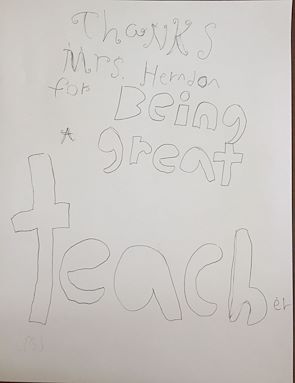 Thanks
Mrs. Herndon
for Being
A great
teacher